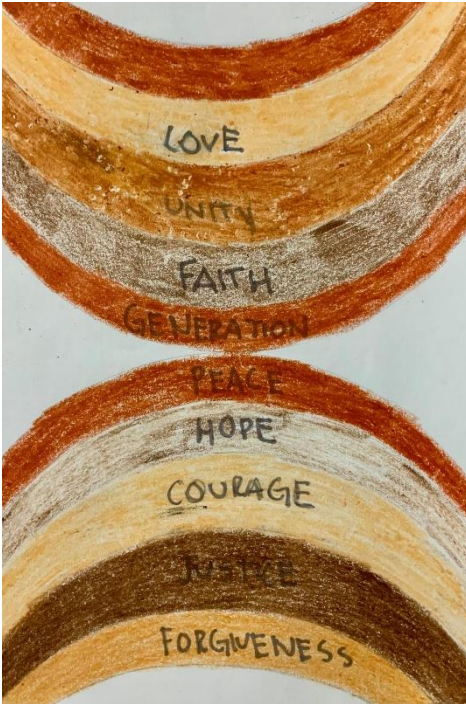 LOVE
UNITY
FAITH
GENERATION
PEACE
HOPE
COURAGE
JUSTICE
FORGIVENESS